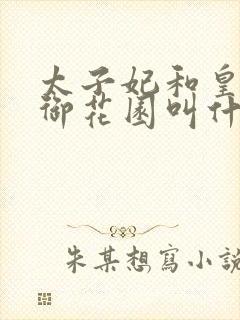 太子妃和皇
御花園叫什
朱某想寫小說